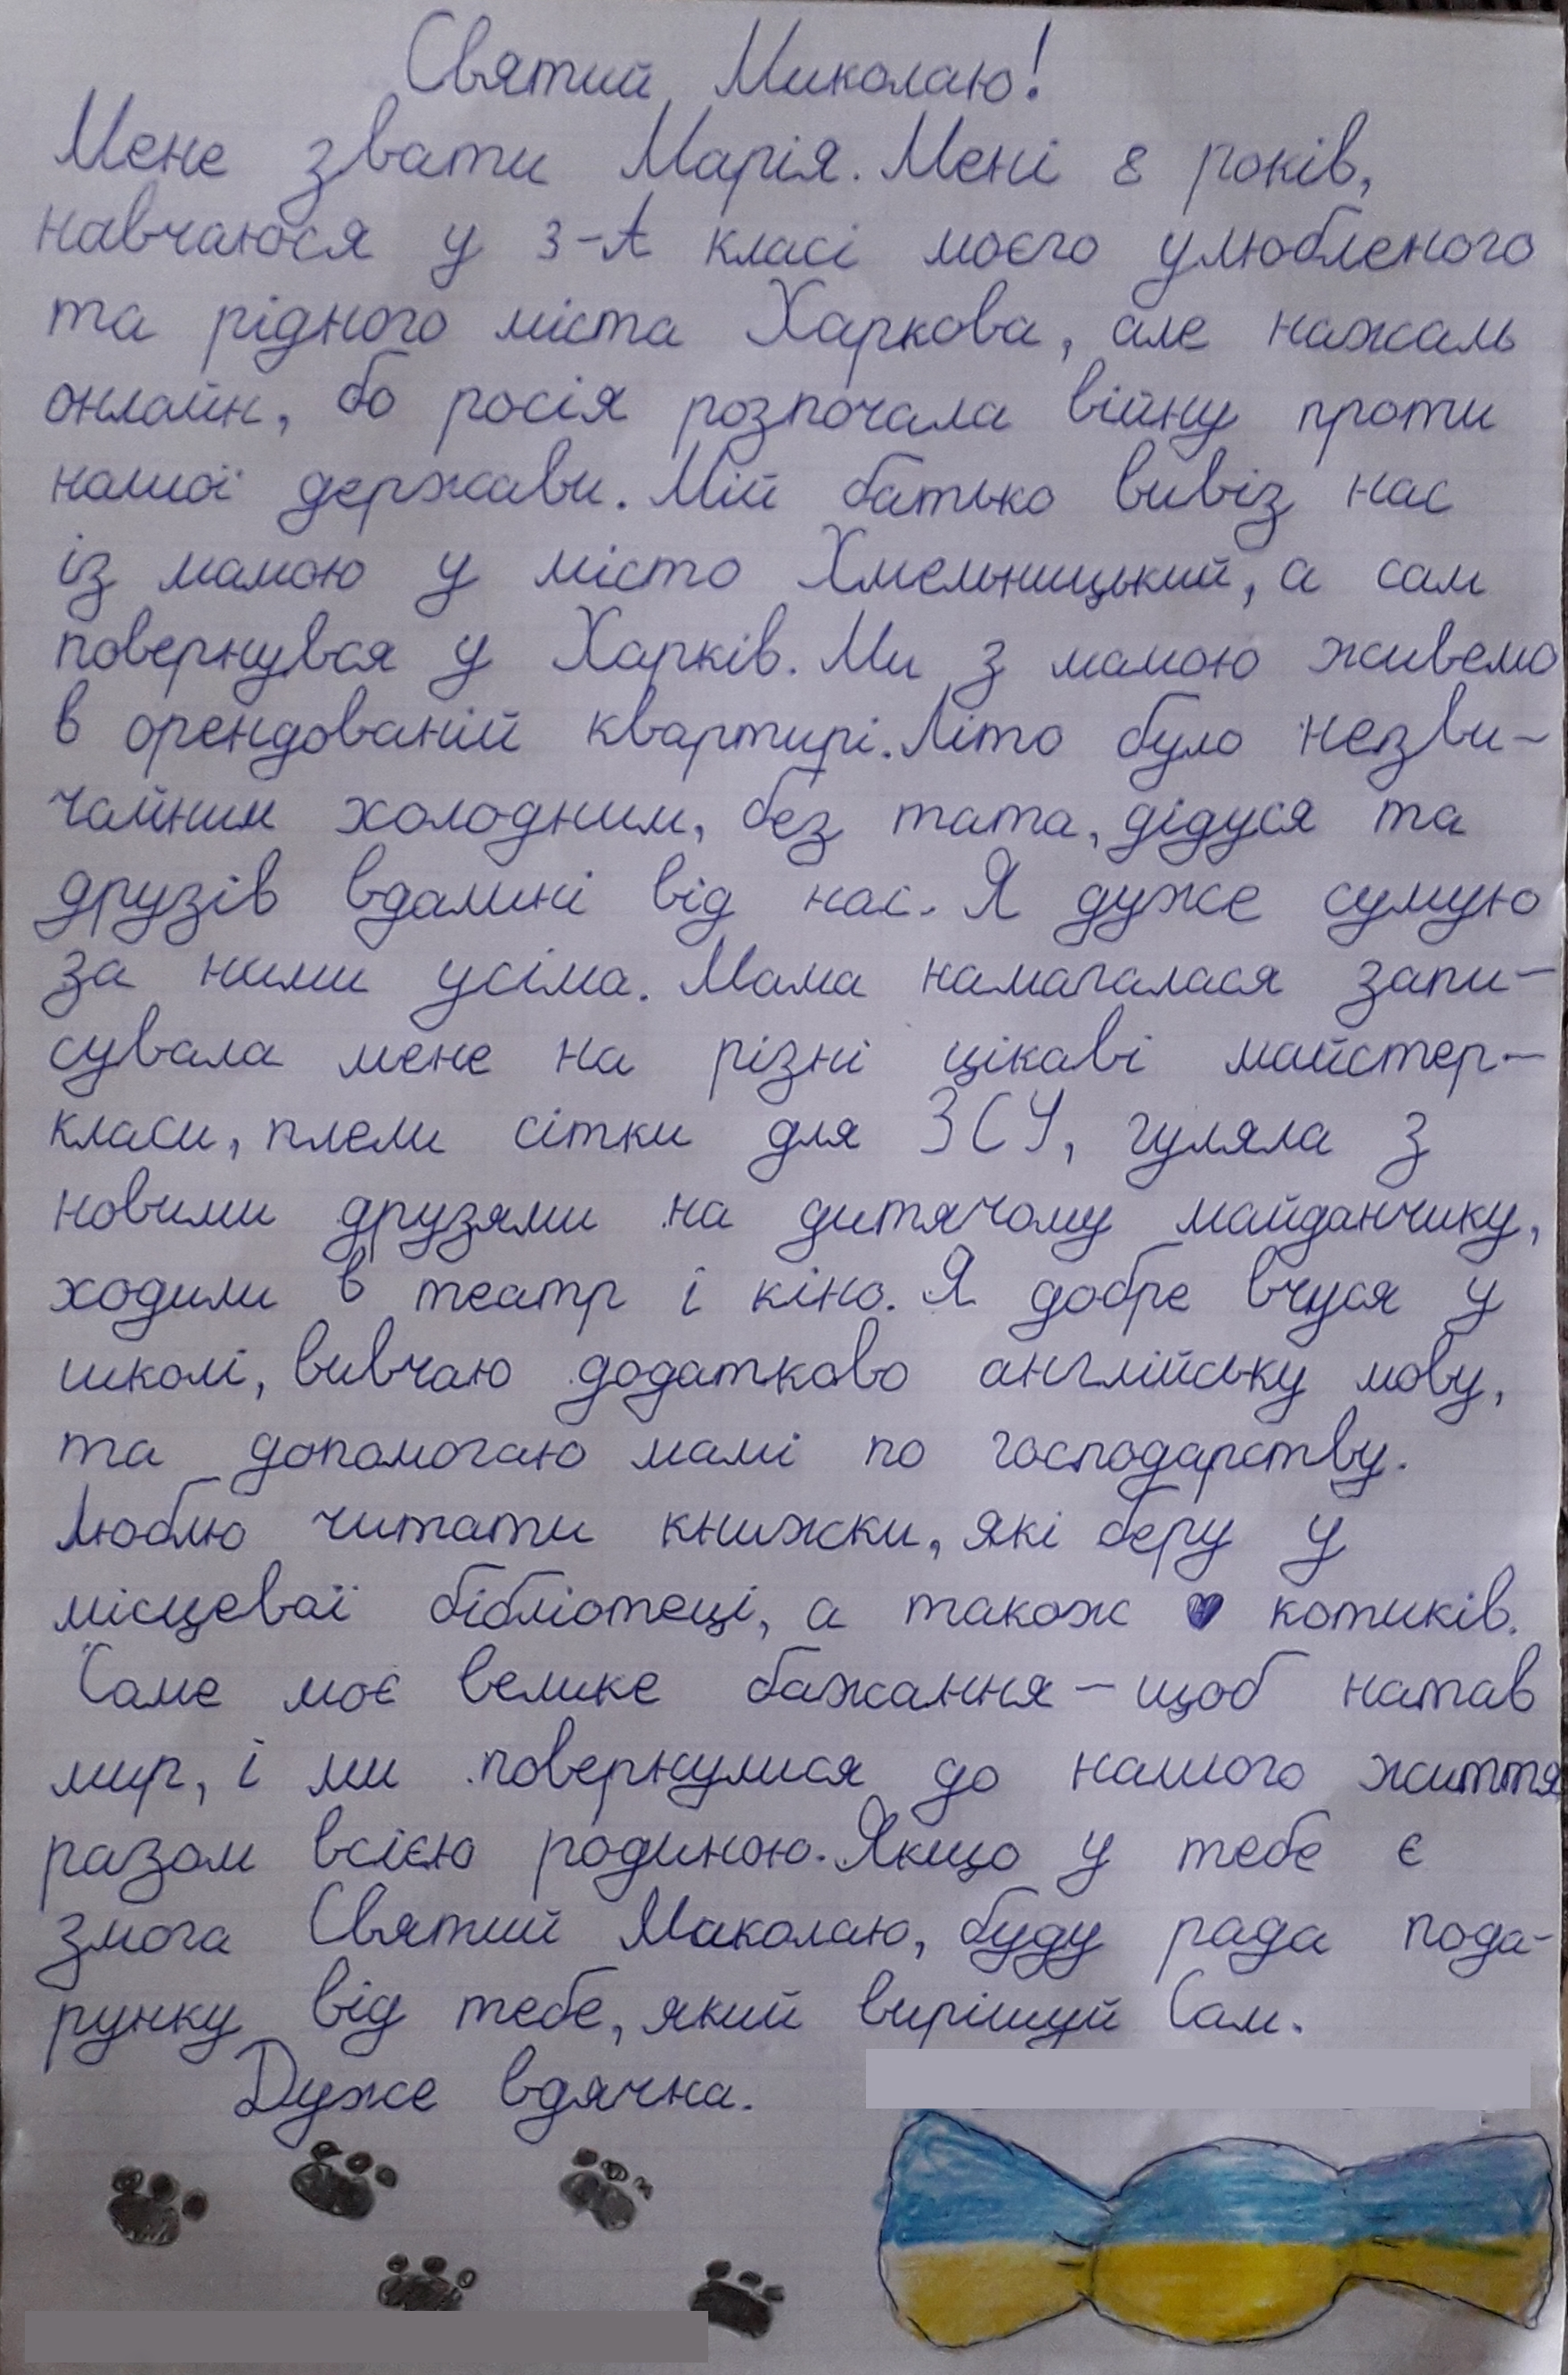 Святий Миколаю!
Мене звати Марія. Мені 8 років,
навчаюся у 3-А класі моєго улюбленого
та рідного міста Харкова, але нажаль
онлайн, бо росія розпочала війну проти
нашої держави. Мій батько вивіз нас
із мамою у місто Хмельницький, а сам
повернувся у Харків. Ми з мамою живемо
в орендованій квартирі. Літо було незви-
чайним холодним, без тата, дідуся та
друзів вдалині від нас. Я дуже сумую
за ними усіма. Мама намагалася запи-
сувала мене на різні цікаві майстер-
класи, плели сітки для ЗСУ, гуляла з
новими друзями на дитячому майданчику,
ходили в театр і кіно. Я добре вчуся у
школі, вивчаю додатково англійську мову,
та допомогаю мамі по господарству.
Люблю читати книжки, які беру у
місцеваї бібліотеці, а також ♥ котиків.
Саме моє велике бажання – щоб натав
мир, і ми повернулися до нашого життя
разом всією родиною. Якщо у тебе є
змога Святий Маколаю, буду рада пода-
рунку від тебе, який вирішуй Сам.
Дуже вдячна.